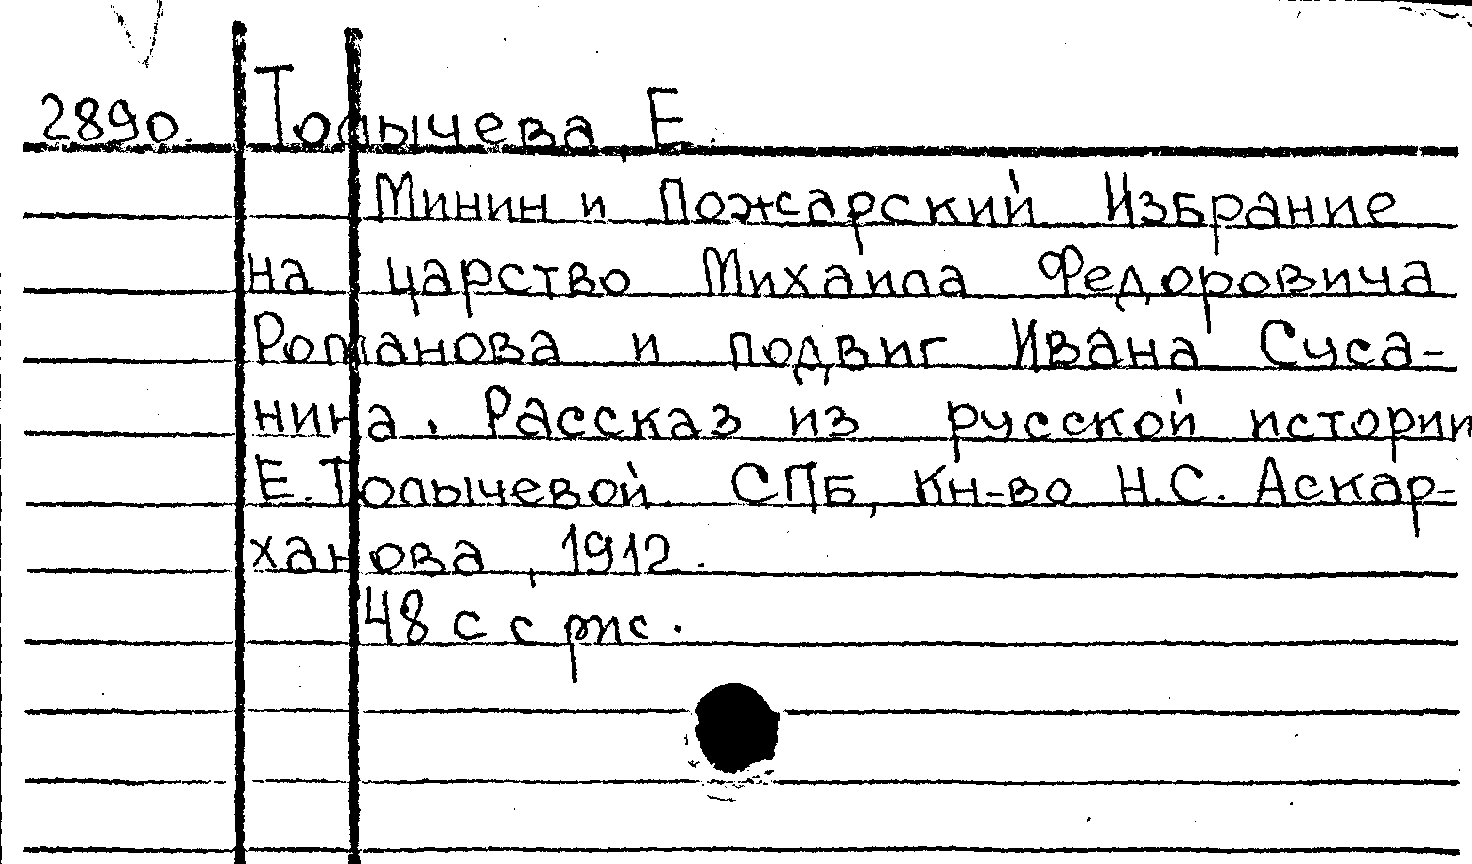 2890. Толычева, Е.
Минин и Пожарский Избрание
на царство Михаила Федоровича
Романова и подвиг Ивана Суса-
нина. Рассказ из русской истории
Е. Толычевой. СПБ, Кн-во Н.С. Аскар-
ханова, 1912.
48 с с рис.